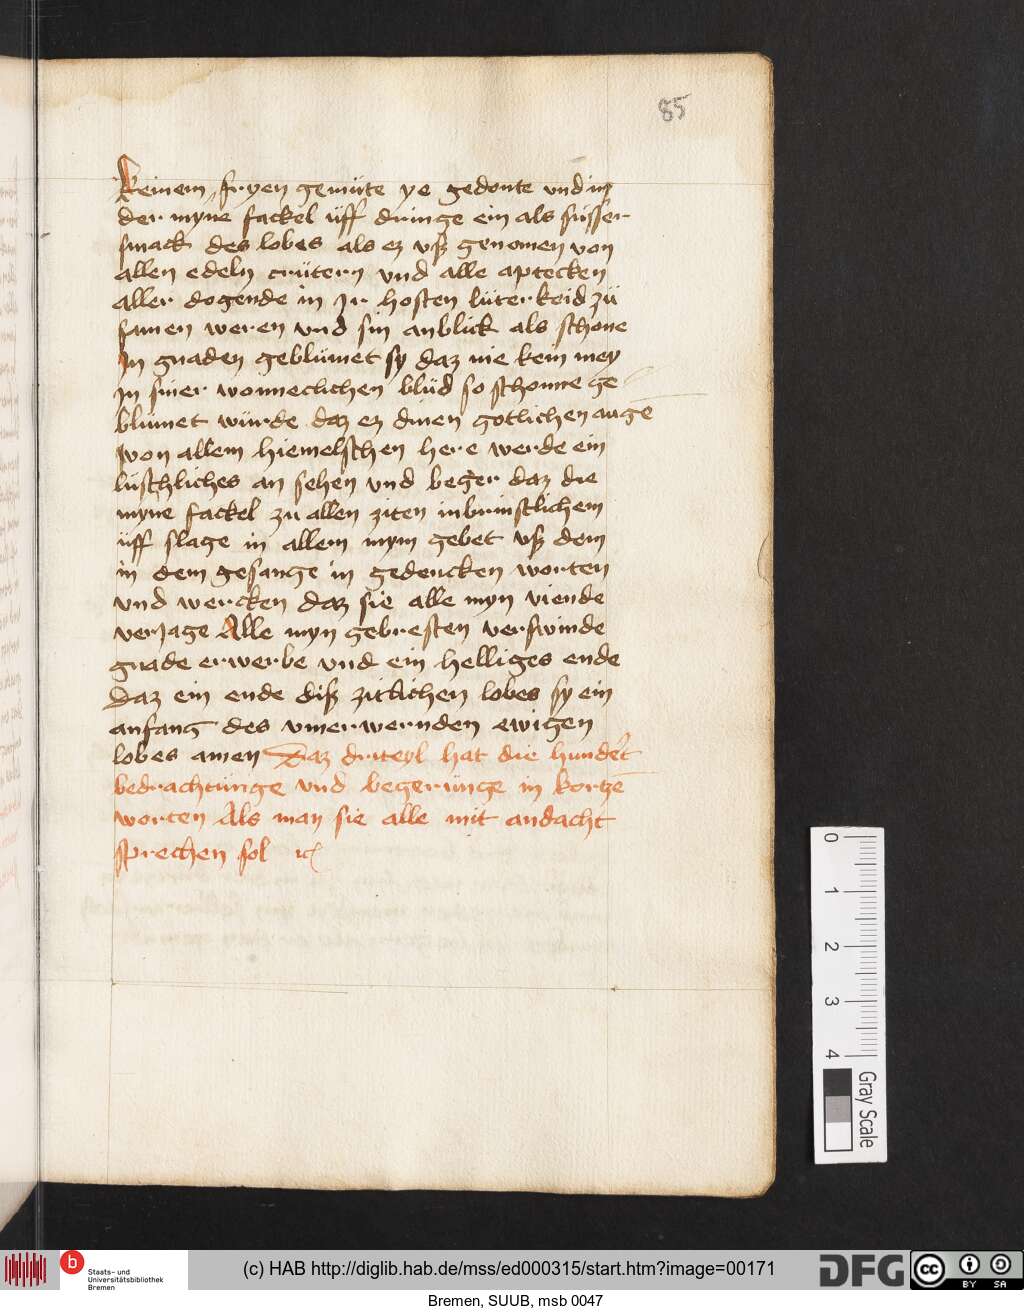 85
keinem fryen gemüte ye gedonte vnd in
der myne fackel üff dringe ein als süsser
smack des lobes als ez vß genomen von
allen edeln crütern vnd alle aptecken
aller dogende in Jr hosten lüterkeid zü
samen weren vnd sin anblick als schone
Jn gnaden geblümet sy daz nie kein mey
Jn siner wonneclichen blüd so schonne ge
blümet würde daz ez dinen gotlichen auge
von allem hiemelschen here werde ein
lüschliches an sehen vnd beger daz die
myne fackel zu allen ziten inbrinstlichem
üff slage in allem mym gebet vß dem
in dem gesange in gedencken worten
vnd wercken daz sie alle myn viende
verJage Alle myn gebresten verswinde
gnade erwerbe vnd ein helliges ende
Daz ein ende diß zitlichen lobes sy ein
anfang des vmerwernden ewigen
lobes amen Daz driteyl hat die hundert
bedrachtünge vnd begerünge in kortze
worten Als man sie alle mit andacht
sprechen sol
0 1 2 3 4
Gray Scale
b
Staats- und
Universitätsbibliothek
Bremen
(c) HAB http://diglib.hab.de/mss/ed000315/start.htm?image=00171
DFG
cc BY SA
Bremen, SUUB, msb 0047